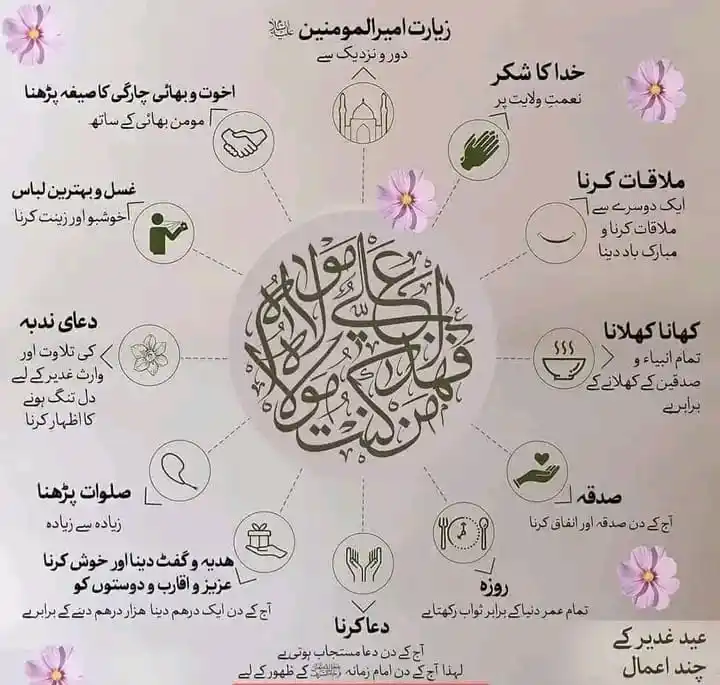 زیارت امیرالمومنین علیہ السلام
دور و نزدیک سے
خدا کا شکر
نعمتِ ولایت پر
ملاقات کرنا
ایک دوسرے سے
ملاقات کرنا و
مبارک باد دینا
کھانا کھلانا
تمام انبیاء و
صدقین کے کھلانے کے
برابر ہے
صدقہ
آج کے دن صدقہ اور انفاق کرنا
روزہ
تمام عمر دنیا کے برابر ثواب رکھتا ہے
دعا کرنا
آج کے دن دعا مستجاب ہوتی ہے
لہذا آج کے دن امام زمانہ کے ظہور کے لیے
ہدیہ و گفٹ دینا اور خوش کرنا
عزیز و اقارب و دوستوں کو
آج کے دن ایک درھم دینا ھزار درھم دینے کے برابر ہے
صلوات پڑھنا
زیادہ سے زیادہ
دعای ندبہ
کی تلاوت اور
وارث غدیر کے لیے
دل تنگ ہونے
کا اظہار کرنا
غسل و بہترین لباس
خوشبو اور زینت کرنا
اخوت و بھائی چارگی کا صیغہ پڑھنا
مومن بھائی کے ساتھ
من کنت مولاه فهذا علي مولاه
عید غدیر کے
چند اعمال